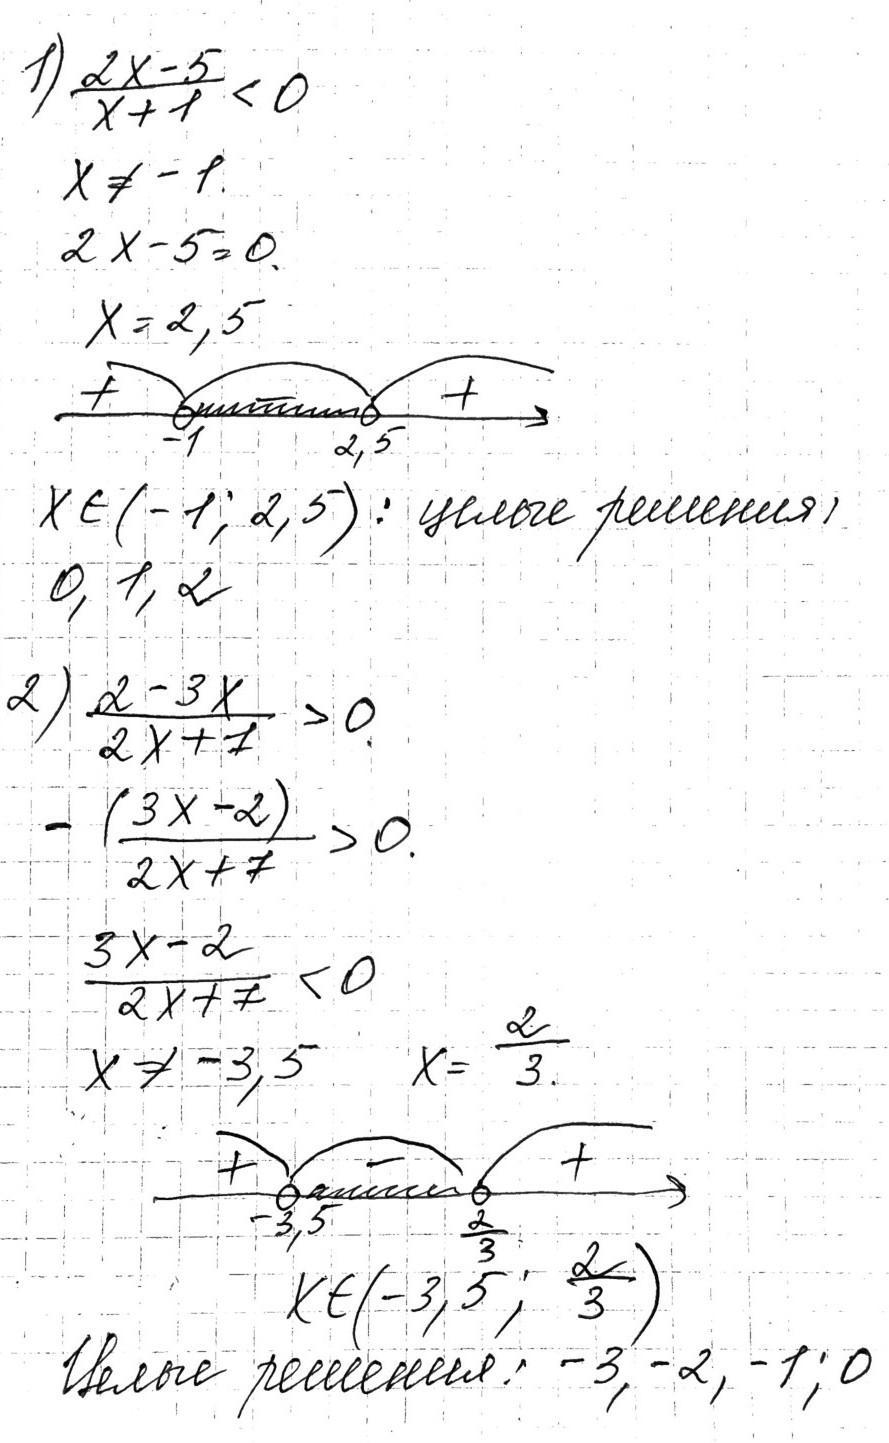 1) (2x-5)/(x+1) < 0
x ≠ -1.
2x-5=0.
x=2,5
+ - +
-1 2,5
x∈(-1; 2,5): целые решения:
0, 1, 2
2) (2-3x)/(2x+7) > 0.
- (3x-2)/(2x+7) > 0.
(3x-2)/(2x+7) < 0
x ≠ -3,5 x = 2/3.
+ - +
-3,5 2/3
x∈(-3,5; 2/3)
Целые решения: -3, -2, -1; 0